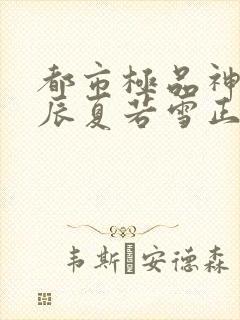 都市極品神
辰夏若雪正
韦斯�安德森